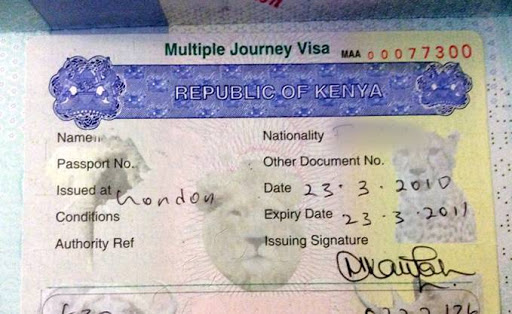 Multiple Journey Visa MAA 00077300
REPUBLIC OF KENYA
Name Nationality
Passport No. Other Document No.
Issued at London Date 23.3.2010
Conditions Expiry Date 23.3.2011
Authority Ref Issuing Signature